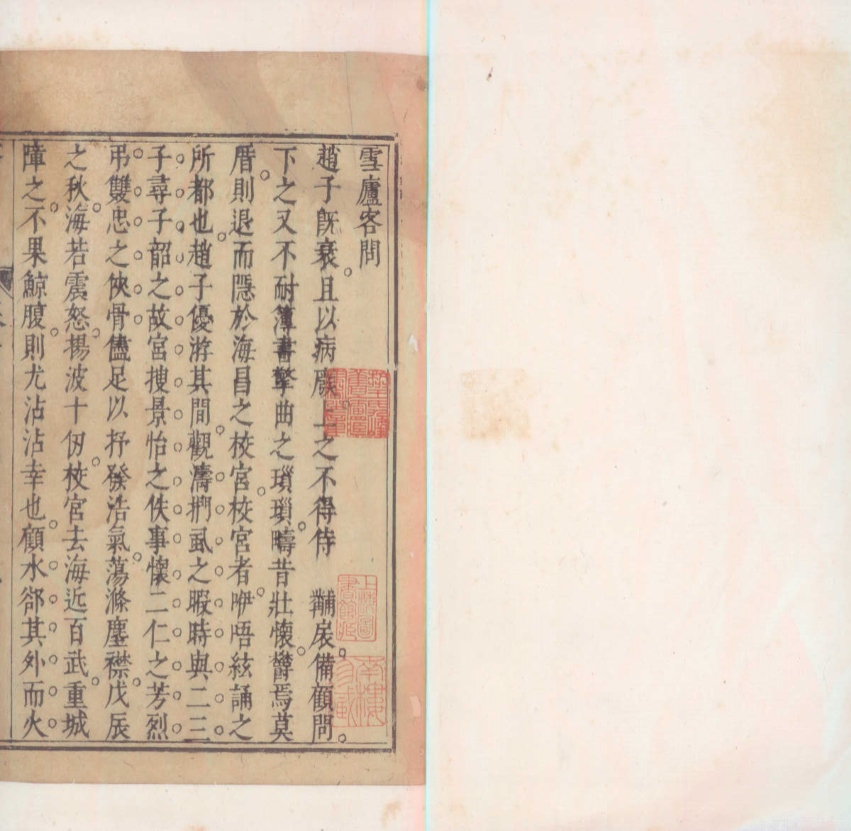 雪廬客問
趙子既衰且以病廢上之不得侍黼扆備顧問
下之又不耐簿書擎曲之瑣瑣疇昔壯懷欝焉莫
厝則退而隱於海昌之校宮校宮者咿唔絃誦之
所都也趙子優游其間觀濤捫虱之暇時與二三
子尋子韶之故宮搜景怡之佚事懷二仁之芳烈
弔雙忠之俠骨儘足以抒發浩氣蕩滌塵襟戊辰
之秋海若震怒揚波十仞校宮去海近百武重城
障之不果鯨腹則尤沾沾幸也顧水郤其外而火